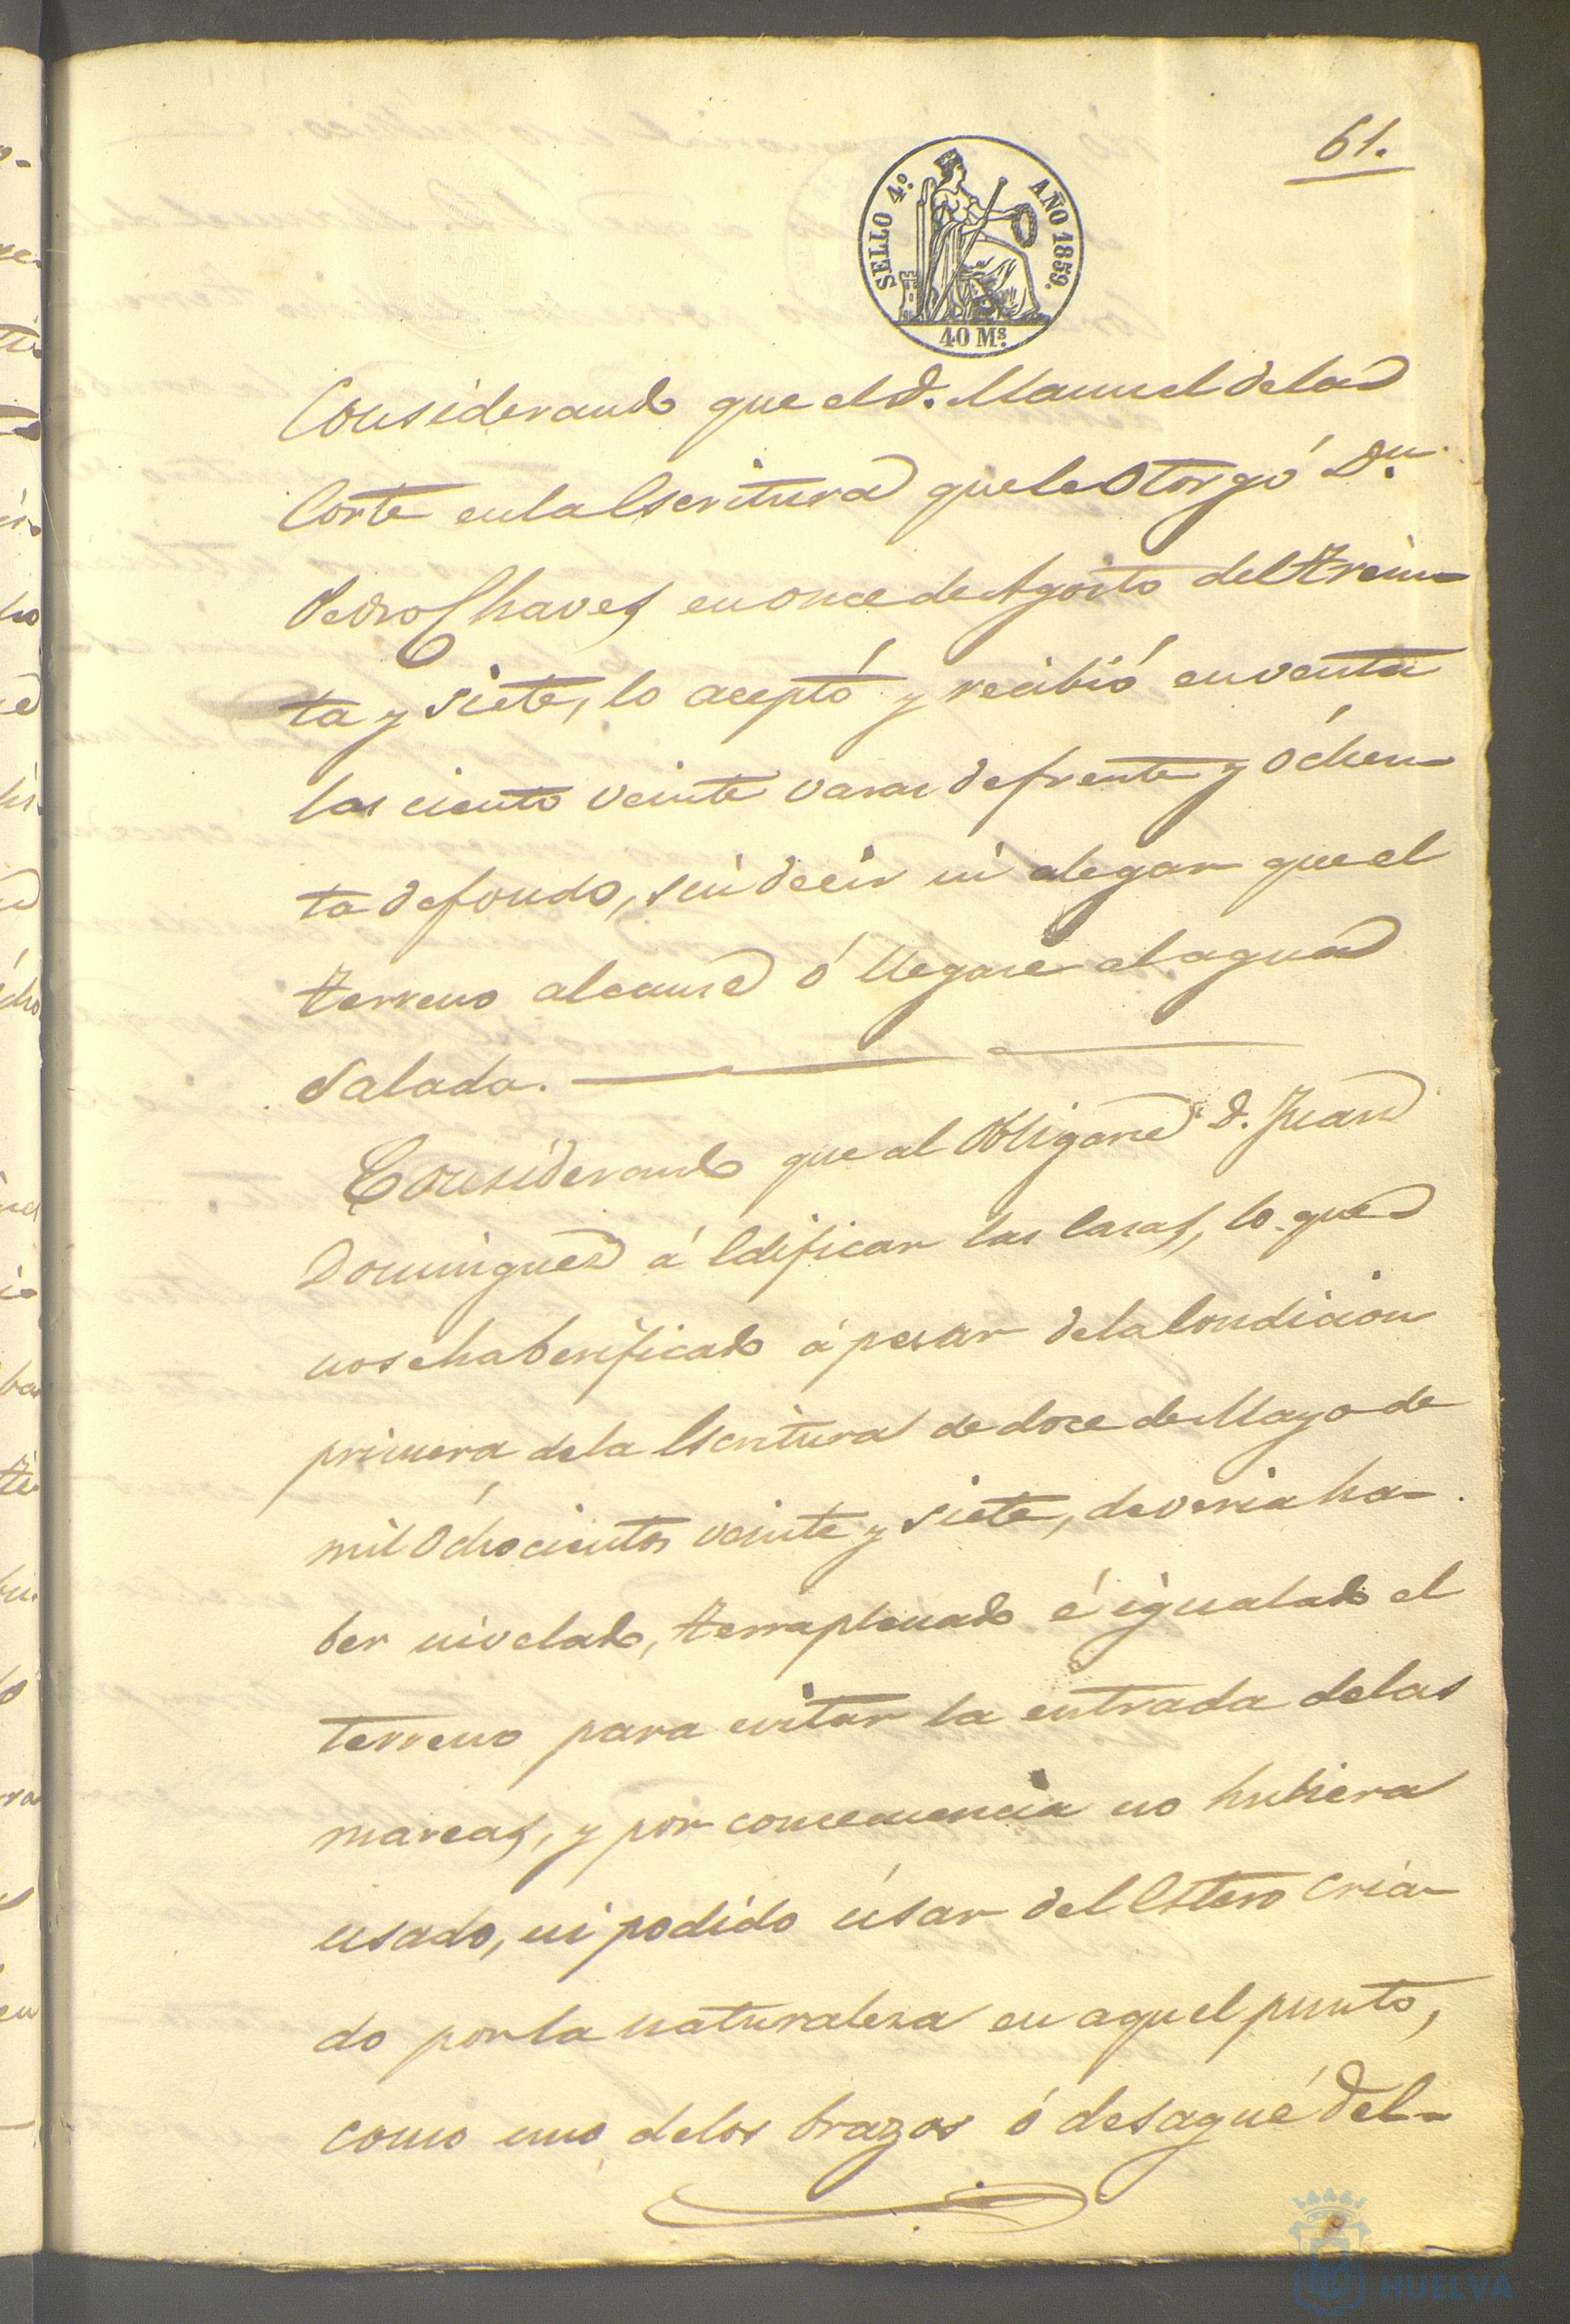 61.
SELLO 4.º AÑO 1859.
40 Ms.
Considerando que el D. Manuel dela
Corte enla Escritura que le Otorgó Dn.
Pedro Chaves en once de Agosto del trein-
ta y siete, lo aceptó y recibió en venta
las ciento veinte varas de frente y óchen-
ta de fondo, sin decir ni alegar que el
terreno alcanse ó llegase al agua
Salada.
Considerando que al Obligarse D. Juan
Dominguez á Edificar las Casas, lo que
no se ha berificado á pesar dela Condicion
primera dela Escritura de doce de Mayo de
mil Ochocientos veinte y siete, deveria ha-
ber nivelado, terraplenado é igualado el
terreno para evitar la entrada delas
mareas, y por consecuencia no hubiera
usado, ni podido úsar del Estero cria-
do por la naturaleza en aquel punto,
como uno delos brazos ó desagüe del-
HUELVA